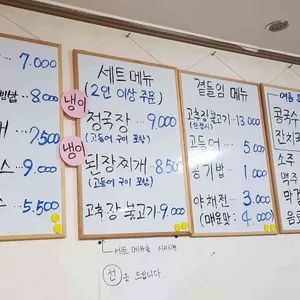 7.000
빔밥 - 8.000
7.500
스 - 9.000
스 - 5.500
세트 메뉴
(2인 이상 주문)
냉이
청국장 - 9.000
(고등어 구이 포함)
냉이
된장찌개 - 8.500
(고등어 구이 포함)
고추장 불고기 - 9.000
세트 메뉴를 시키시면
전 은 드립니다
곁들임 메뉴
고추장 불고기 - 13.000
고등어 - 5.000
공기밥 - 1.000
야채전 - 3.000
(매운맛: 4.000)
여름
콩국수
잔치국
소주
맥주
막걸
음료